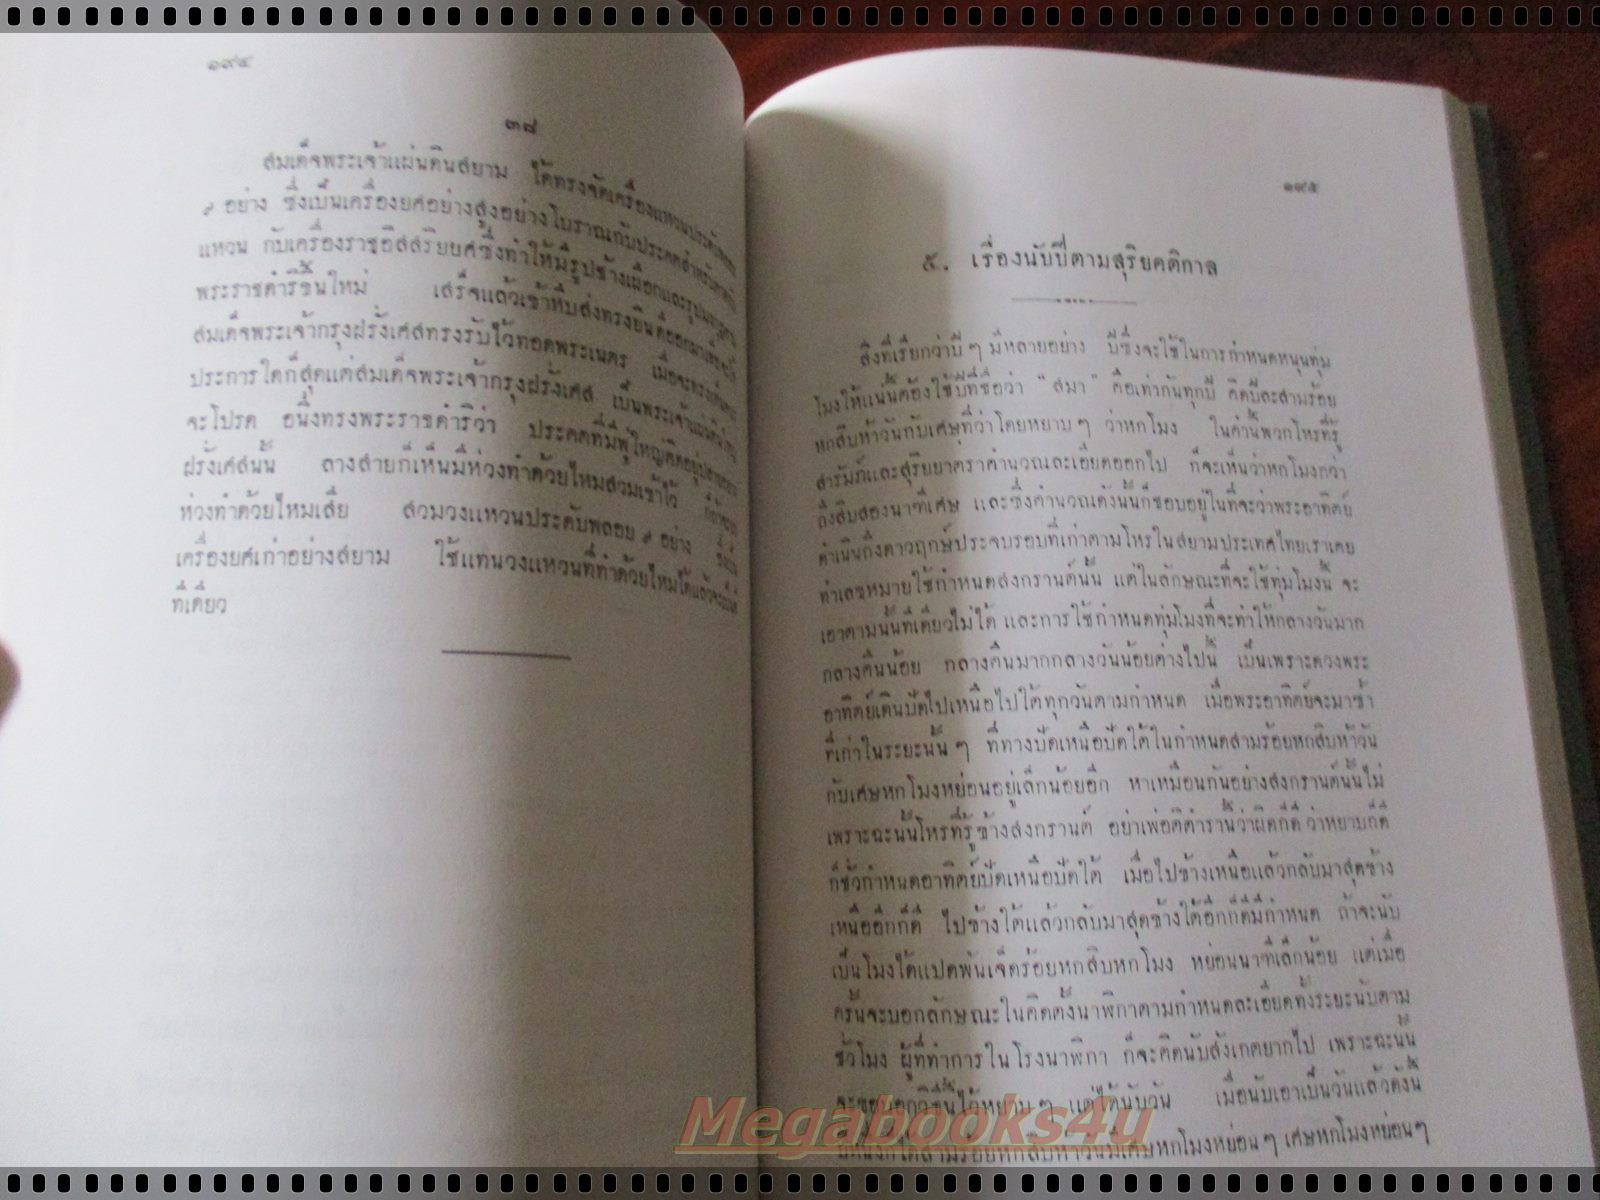 ๑๙๔
๓๘
สมเด็จพระเจ้าแผ่นดินสยาม ได้ทรงจัดเครื่องแหวนประดับพลอย
๙ อย่าง ซึ่งเป็นเครื่องยศอย่างสูงอย่างโบราณกับประคดสำหรับ
แหวน กับเครื่องราชอิสสริยยศซึ่งทำให้มีรูปช้างเผือกและรูป
พระราชดำริขึ้นใหม่ เสร็จแล้วเข้าหีบส่งทรงยินดีออกมา
สมเด็จพระเจ้ากรุงฝรั่งเศสทรงรับไว้ทอดพระเนตร เมื่อจะทรง
ประการใดก็สุดแต่สมเด็จพระเจ้ากรุงฝรั่งเศส เป็นพระเจ้าแผ่นดิน
จะโปรด อนึ่งทรงพระราชดำริว่า ประคดที่มีพู่ใหญ่ติดอยู่
ฝรั่งเศสนั้น ลางสายก็เห็นมีห่วงทำด้วยไหมสวมเข้าไว้
ห่วงทำด้วยไหมเสีย สวมวงแหวนประดับพลอย ๙ อย่าง
เครื่องยศเก่าอย่างสยาม ใช้แทนวงแหวนที่ทำด้วยไหมได้แล้วจะ
ทีเดียว
๑๙๕
๕. เรื่องนับปีตามสุริยคติกาล
สิ่งที่เรียกว่าปี ๆ มีหลายอย่าง ปีซึ่งจะใช้ในการกำหนดหนุนทุ่ม
โมงให้แน่นั้นต้องใช้ปีที่ชื่อว่า “ สมา ” คือเท่ากันทุกปี คิดปีละสามร้อย
หกสิบห้าวันกับเศษที่ว่าโดยหยาบ ๆ ว่าหกโมง ในคำนี้พวกโหรที่รู้
สารัมภ์และสุริยยาตราคำนวณละเอียดออกไป ก็จะเห็นว่าหกโมงกว่า
ถึงสิบสองนาฑีเศษ และซึ่งคำนวณดังนั้นก็ชอบอยู่ในที่จะว่าพระอาทิตย์
ดำเนินถึงดาวฤกษ์ประจบรอบที่เก่าตามโหรในสยามประเทศไทยเราเคย
ทำเลขหมายใช้กำหนดสงกรานต์นั้น แต่ในลักษณะที่จะใช้ทุ่มโมงนี้ จะ
เอาตามนั้นทีเดียวไม่ได้ และการใช้กำหนดทุ่มโมงที่จะทำให้กลางวันมาก
กลางคืนน้อย กลางคืนมากกลางวันน้อยต่างไปนี้ เป็นเพราะดวงพระ
อาทิตย์เดินปัดไปเหนือไปใต้ทุกวันตามกำหนด เมื่อพระอาทิตย์จะมาซ้ำ
ที่เก่าในระยะนั้น ๆ ที่ทางปัดเหนือปัดใต้ในกำหนดสามร้อยหกสิบห้าวัน
กับเศษหกโมงหย่อนอยู่เล็กน้อยอีก หาเหมือนกันอย่างสงกรานต์นั้นไม่
เพราะฉะนั้นโหรที่รู้ข้างสงกรานต์ อย่าเพ่อติตำรานี้ว่าผิดก็ดี ว่าหยาบก็ดี
ก็ชั่วกำหนดอาทิตย์ปัดเหนือปัดใต้ เมื่อไปข้างเหนือแล้วกลับมาสุดข้าง
เหนืออีกก็ดี ไปข้างใต้แล้วกลับมาสุดข้างใต้อีกก็ดีมีกำหนด ถ้าจะนับ
เป็นโมงได้แปดพันเจ็ดร้อยหกสิบหกโมง หย่อนนาฑีเล็กน้อย แต่เมื่อ
ครั้นจะบอกลักษณะในคิดตั้งนาฬิกาตามกำหนดละเอียดทั้งระยะนับตาม
ชั่วโมง ผู้ที่ทำการในโรงนาฬิกา ก็จะคิดนับสังเกตยากไป เพราะฉะนั้น
จะขอบอกวิธีนี้ไว้หยาบ ๆ แต่ได้นับวัน เมื่อนับเอาเป็นวันแล้วดังนี้
ปีหนึ่งก็ได้สามร้อยหกสิบห้าวันมีเศษหกโมงหย่อน ๆ เศษหกโมงหย่อน ๆ
Megabooks4u